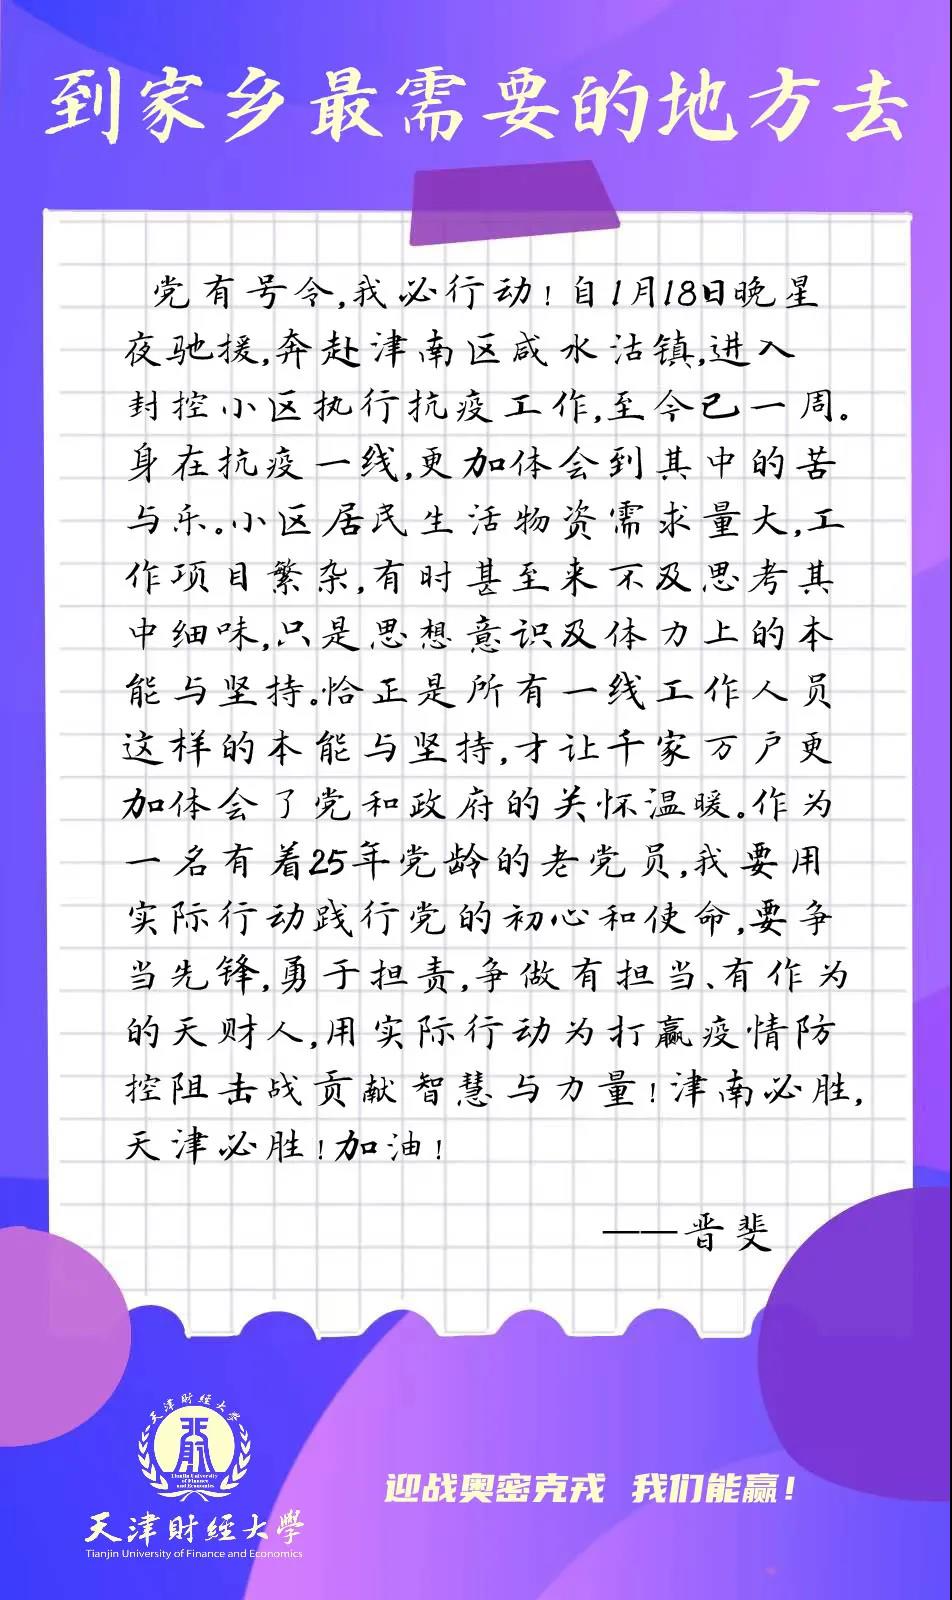 到家乡最需要的地方去
党有号令,我必行动!自1月18日晚星
夜驰援,奔赴津南区咸水沽镇,进入
封控小区执行抗疫工作,至今已一周。
身在抗疫一线,更加体会到其中的苦
与乐。小区居民生活物资需求量大,工
作项目繁杂,有时甚至来不及思考其
中细味,只是思想意识及体力上的本
能与坚持。恰正是所有一线工作人员
这样的本能与坚持,才让千家万户更
加体会了党和政府的关怀温暖。作为
一名有着25年党龄的老党员,我要用
实际行动践行党的初心和使命,要争
当先锋,勇于担责,争做有担当、有作为
的天财人,用实际行动为打赢疫情防
控阻击战贡献智慧与力量!津南必胜,
天津必胜!加油!
——晋斐
天津财经大学
Tianjin University
of Finance
and Economics
迎战奥密克戎 我们能赢!
天津财经大学
Tianjin University of Finance and Economics